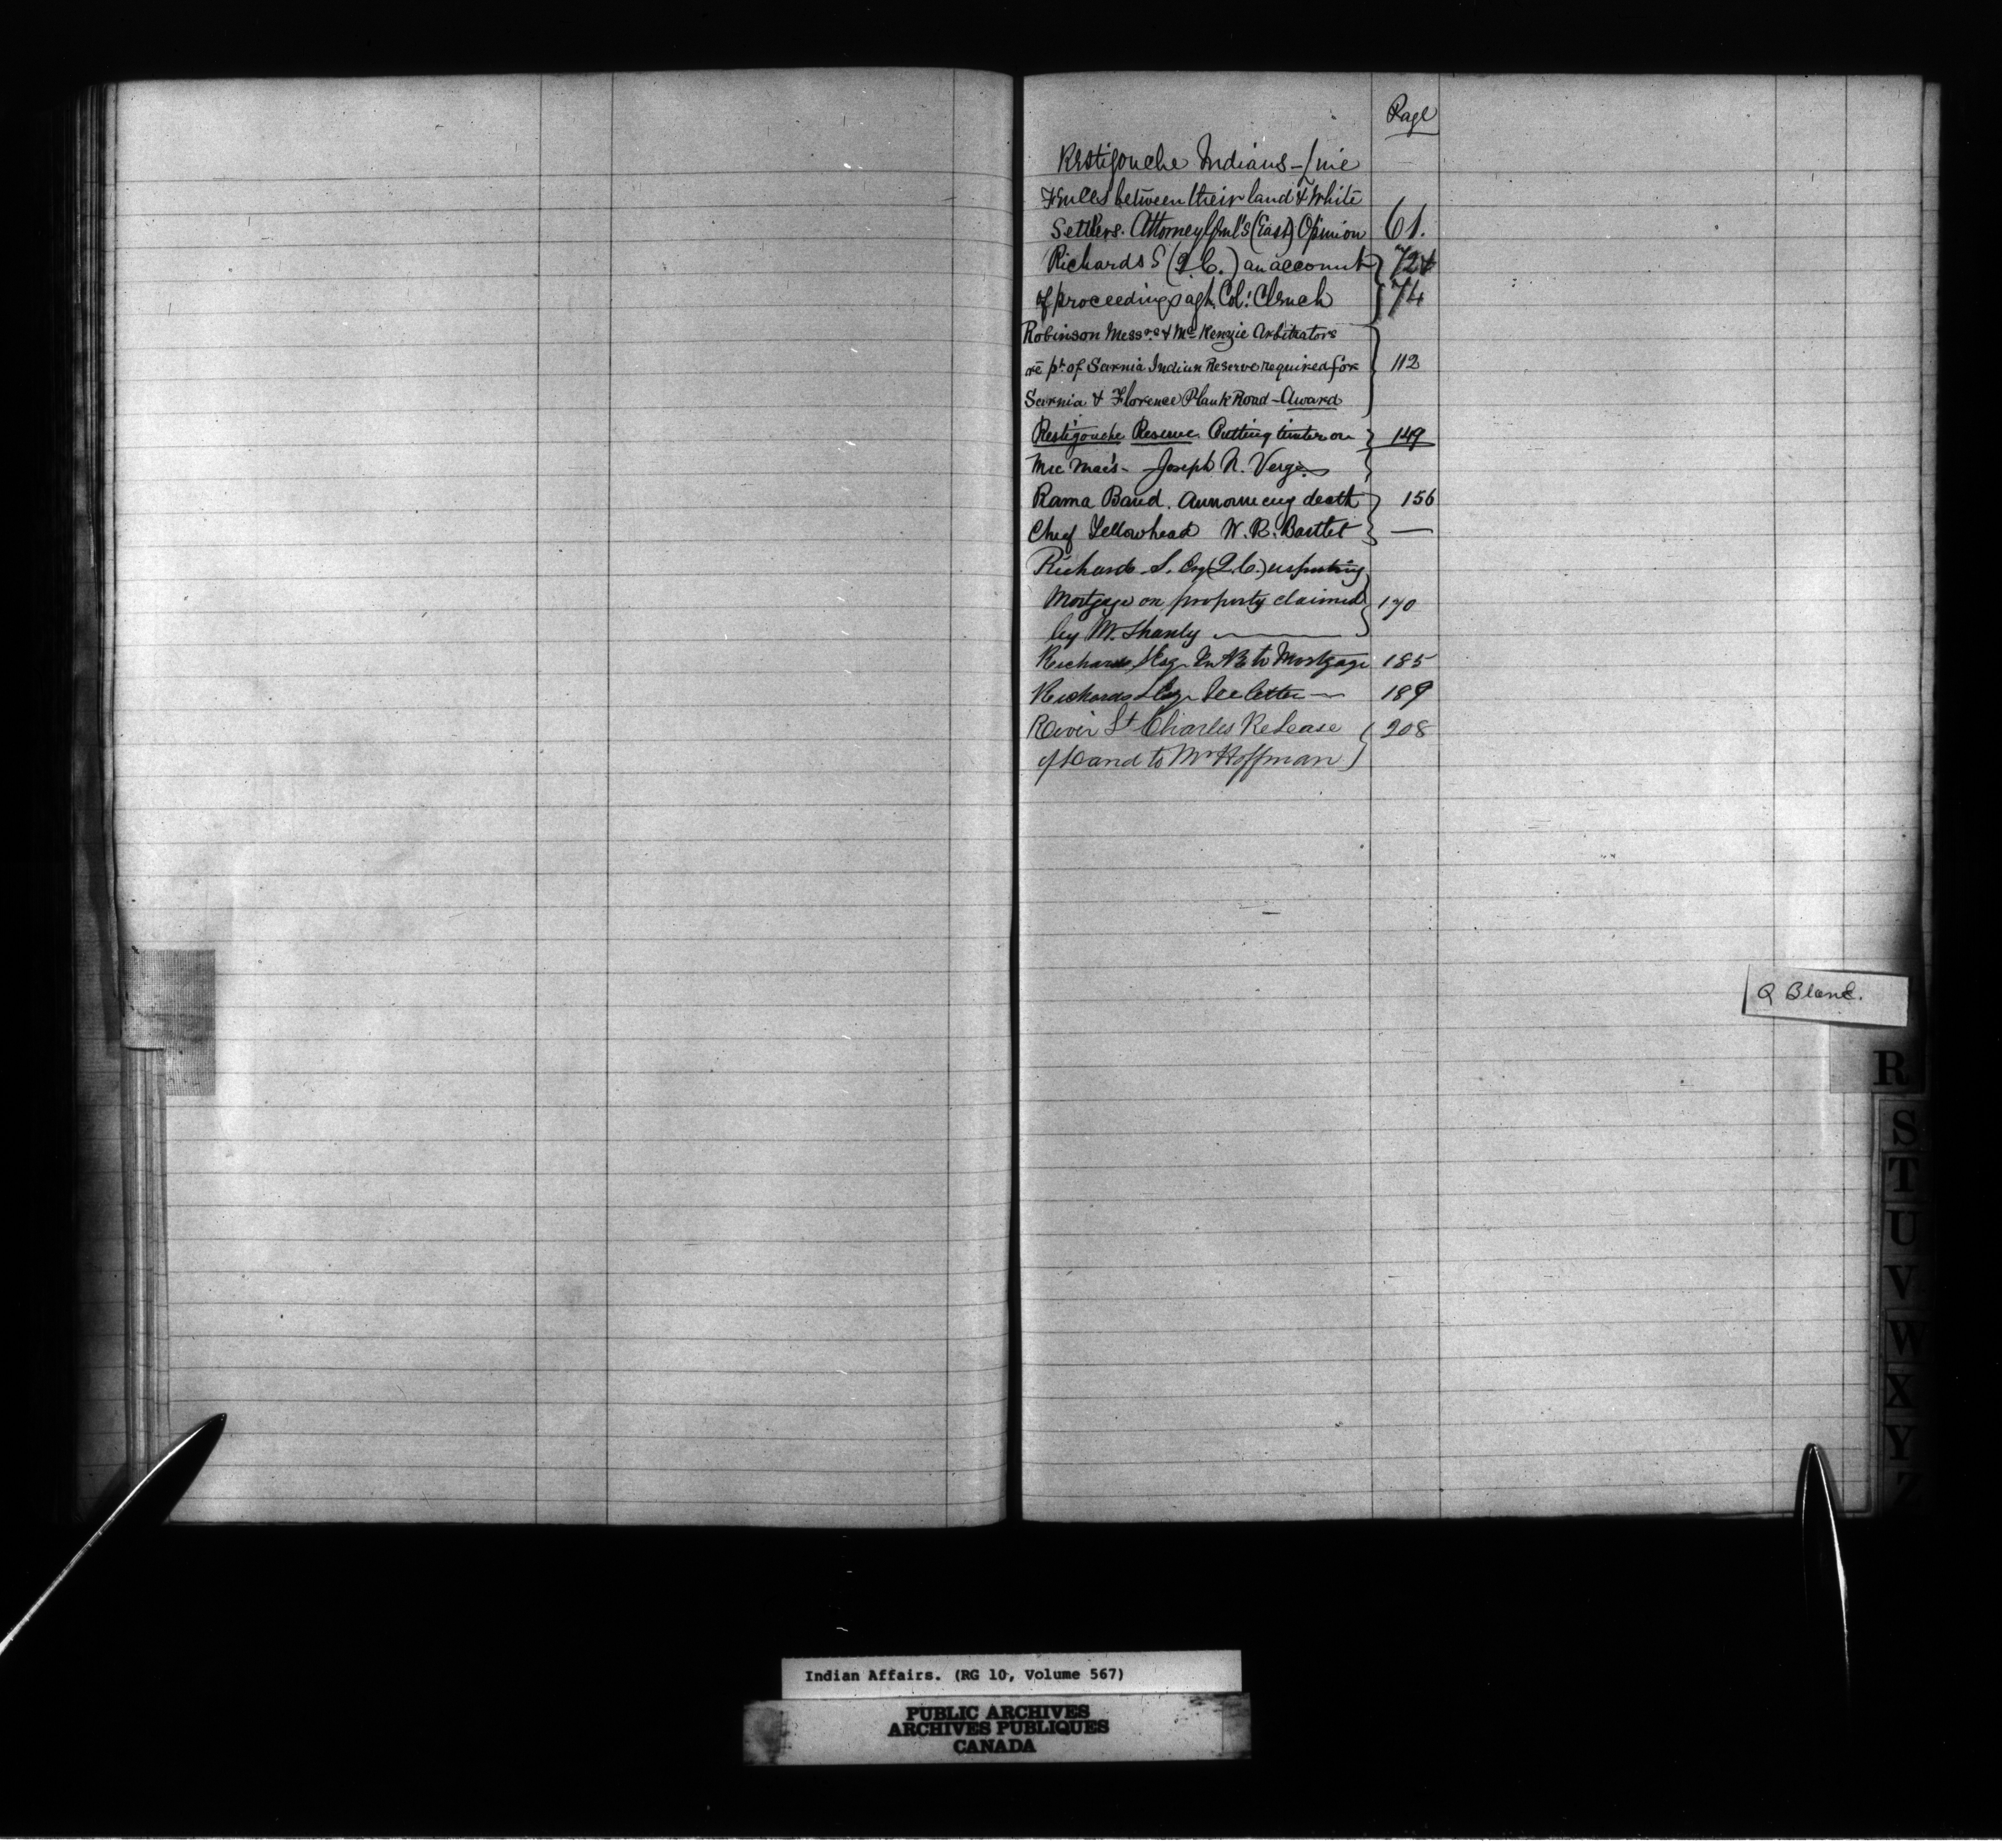 Page
Restigouche Indians - Line
Fences between their land & White
Settlers. Attorney Genl's (East) Opinion 61.
Richards S (Q.C.) an account 72 &
of proceedings agt. Col: Clench 74
Robinson Messrs & McKenzie Arbitrators
re pt of Sarnia Indian Reserve required for 112
Sarnia & Florence Plank Road - Award
Restigouche Reserve Cutting timber on 149
Mic Mac's - Joseph N. Verge
Rama Band. Announcing death 156
Chief Yellowhead W. R. Bartlet —
Richards S. Esq (Q.C.) respecting
Mortgage on property claimed 170
by M. Shanly
Richards S Esq In Re to Mortgage 185
Richards S Esq See letter — 189
River St Charles Release 208
of Land to Mr Hoffman
Q Blank.
R
S
T
U
V
W
X
Y
Z
Indian Affairs. (RG 10, Volume 567)
PUBLIC ARCHIVES
ARCHIVES PUBLIQUES
CANADA